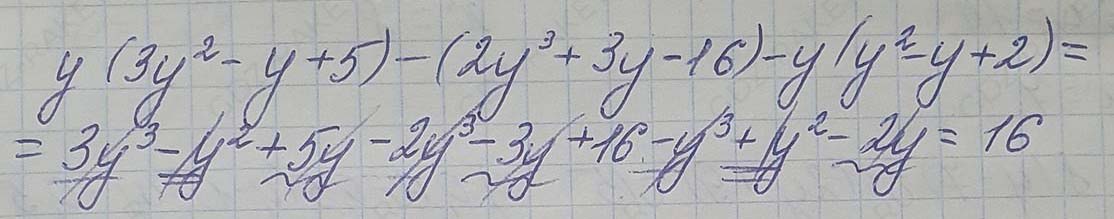 y(3y²-y+5)-(2y³+3y-16)-y(y²-y+2)=
=3y³-y²+5y-2y³-3y+16-y³+y²-2y=16